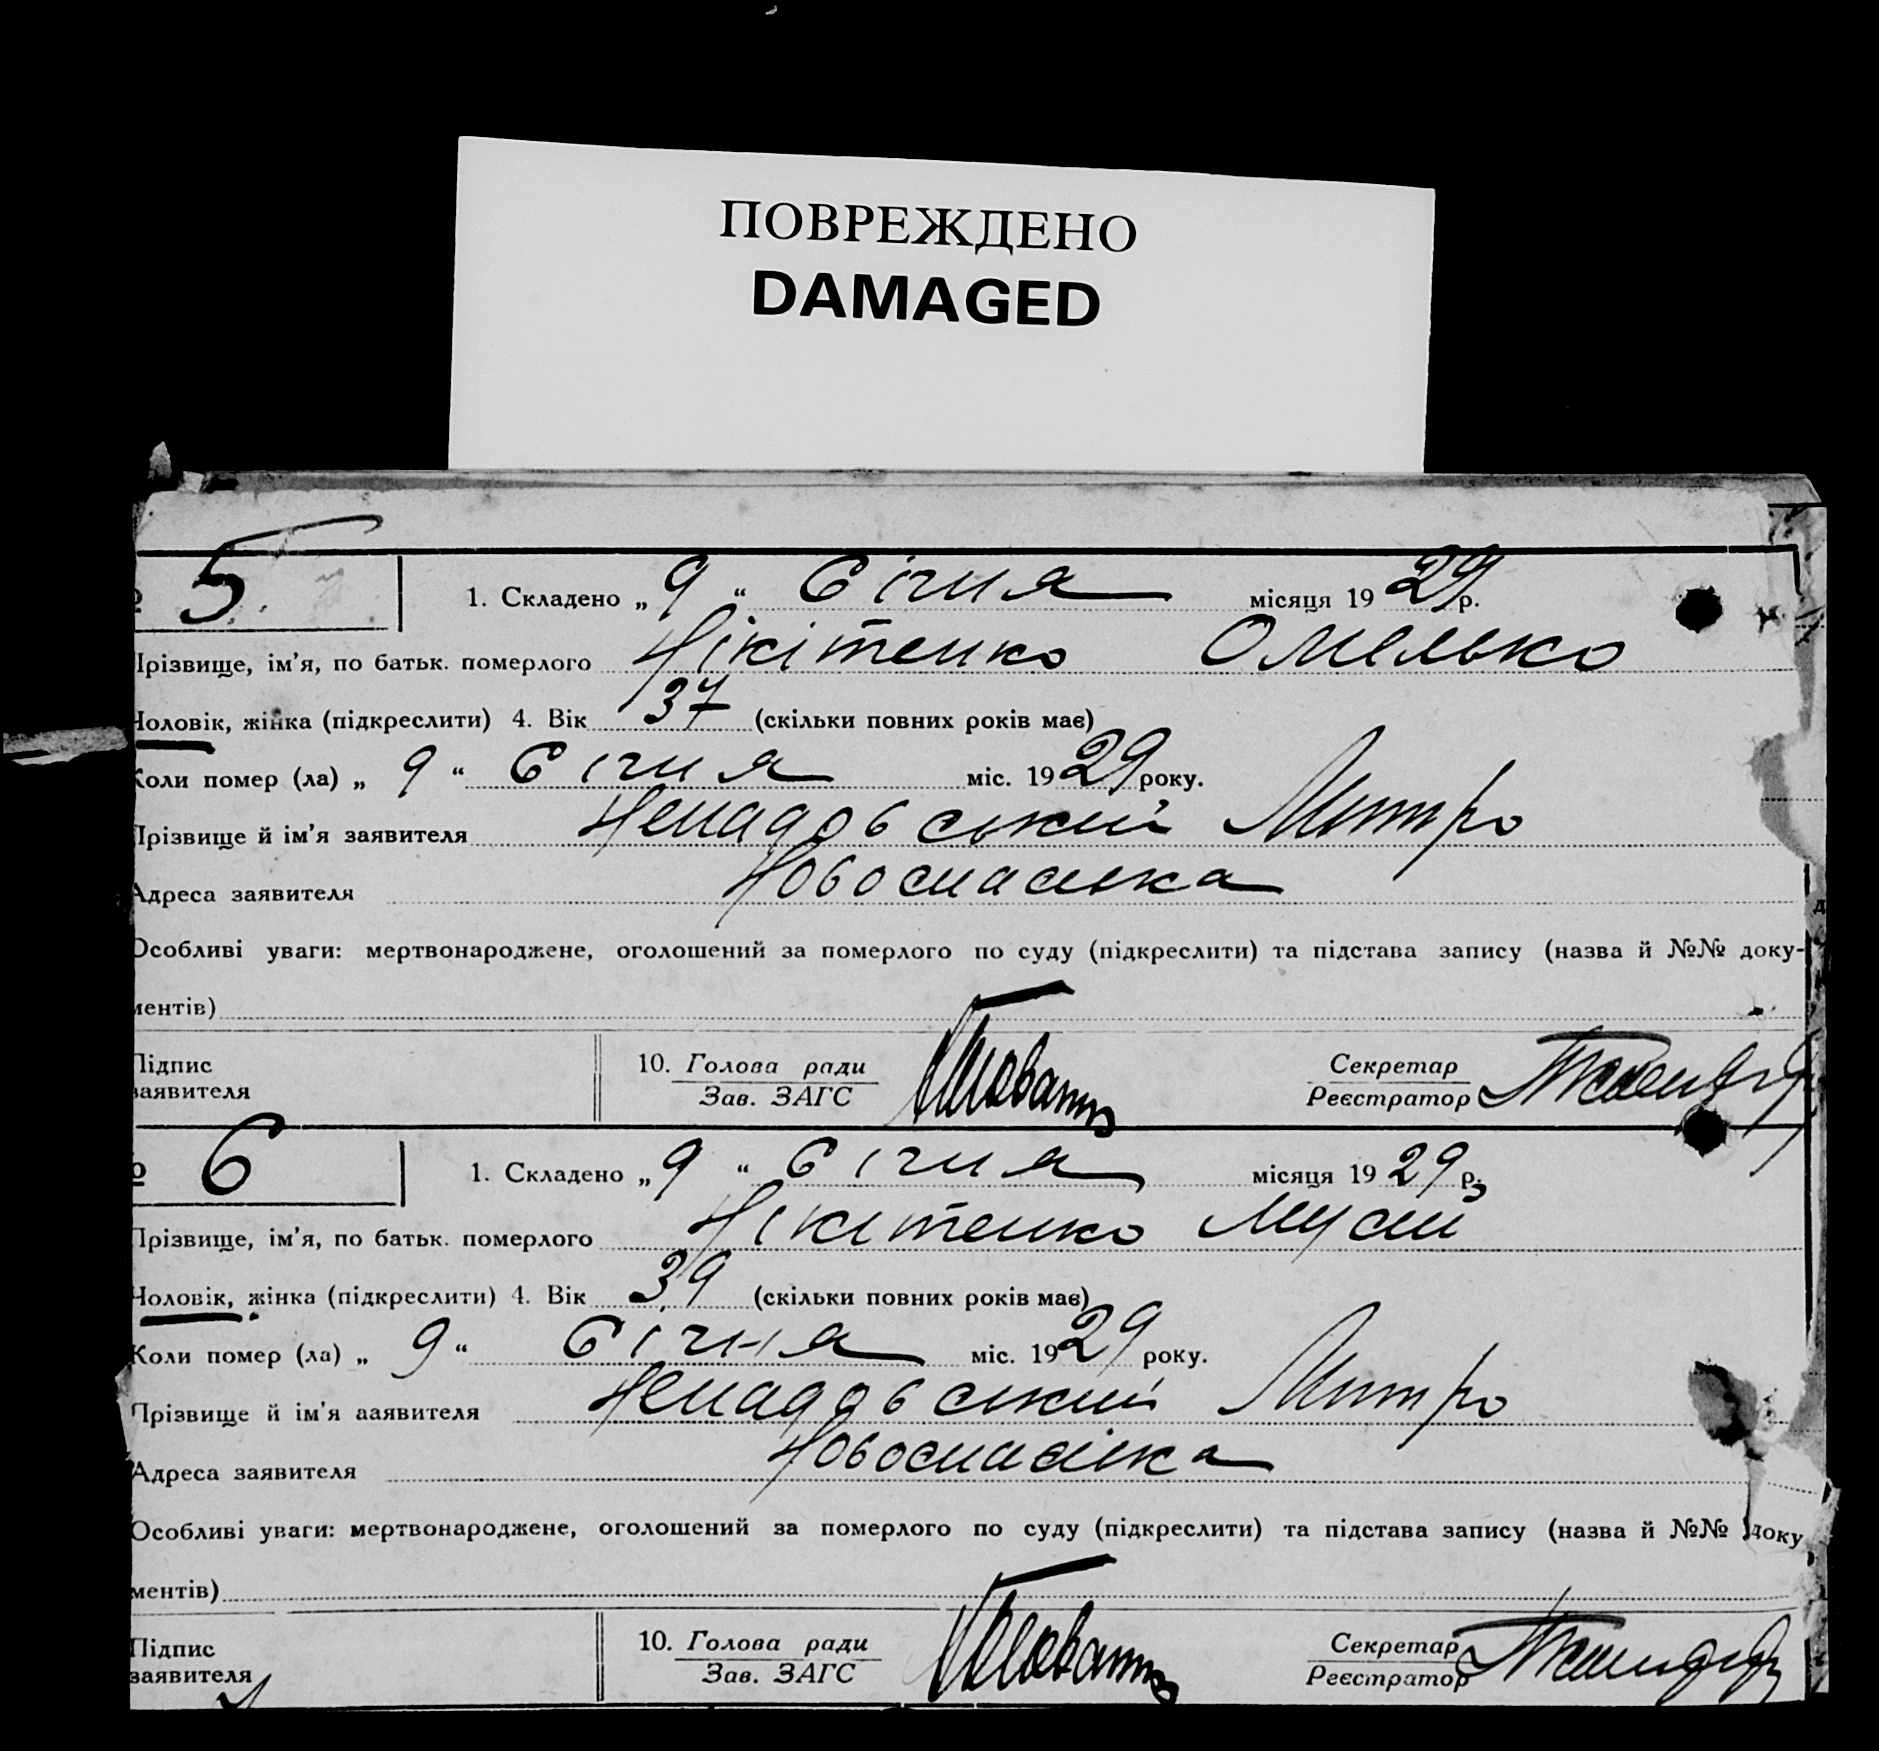 ПОВРЕЖДЕНО
DAMAGED
№ 5. 1. Складено „ 9 “ Січня місяця 19 29 р.
Прізвище, ім’я, по батьк. померлого Нікітенко Омелько
Чоловік, жінка (підкреслити) 4. Вік 37 (скільки повних років має)
Коли помер (ла) „ 9 “ Січня міс. 19 29 року.
Прізвище й ім’я заявителя Ненадовський Митро
Адреса заявителя Новоспасівка
Особливі уваги: мертвонароджене, оголошений за померлого по суду (підкреслити) та підстава запису (назва й №№ доку-
ментів)
Підпис 10. Голова ради Секретар
заявителя Зав. ЗАГС Реєстратор
№ 6 1. Складено „ 9 “ Січня місяця 19 29 р.
Прізвище, ім’я, по батьк. померлого Нікітенко Мусій
Чоловік, жінка (підкреслити) 4. Вік 39 (скільки повних років має)
Коли помер (ла) „ 9 “ Січня міс. 19 29 року.
Прізвище й ім’я ааявителя Ненадовський Митро
Адреса заявителя Новоспасівка
Особливі уваги: мертвонароджене, оголошений за померлого по суду (підкреслити) та підстава запису (назва й №№ доку
ментів)
Підпис 10. Голова ради Секретар
заявителя Зав. ЗАГС Реєстратор